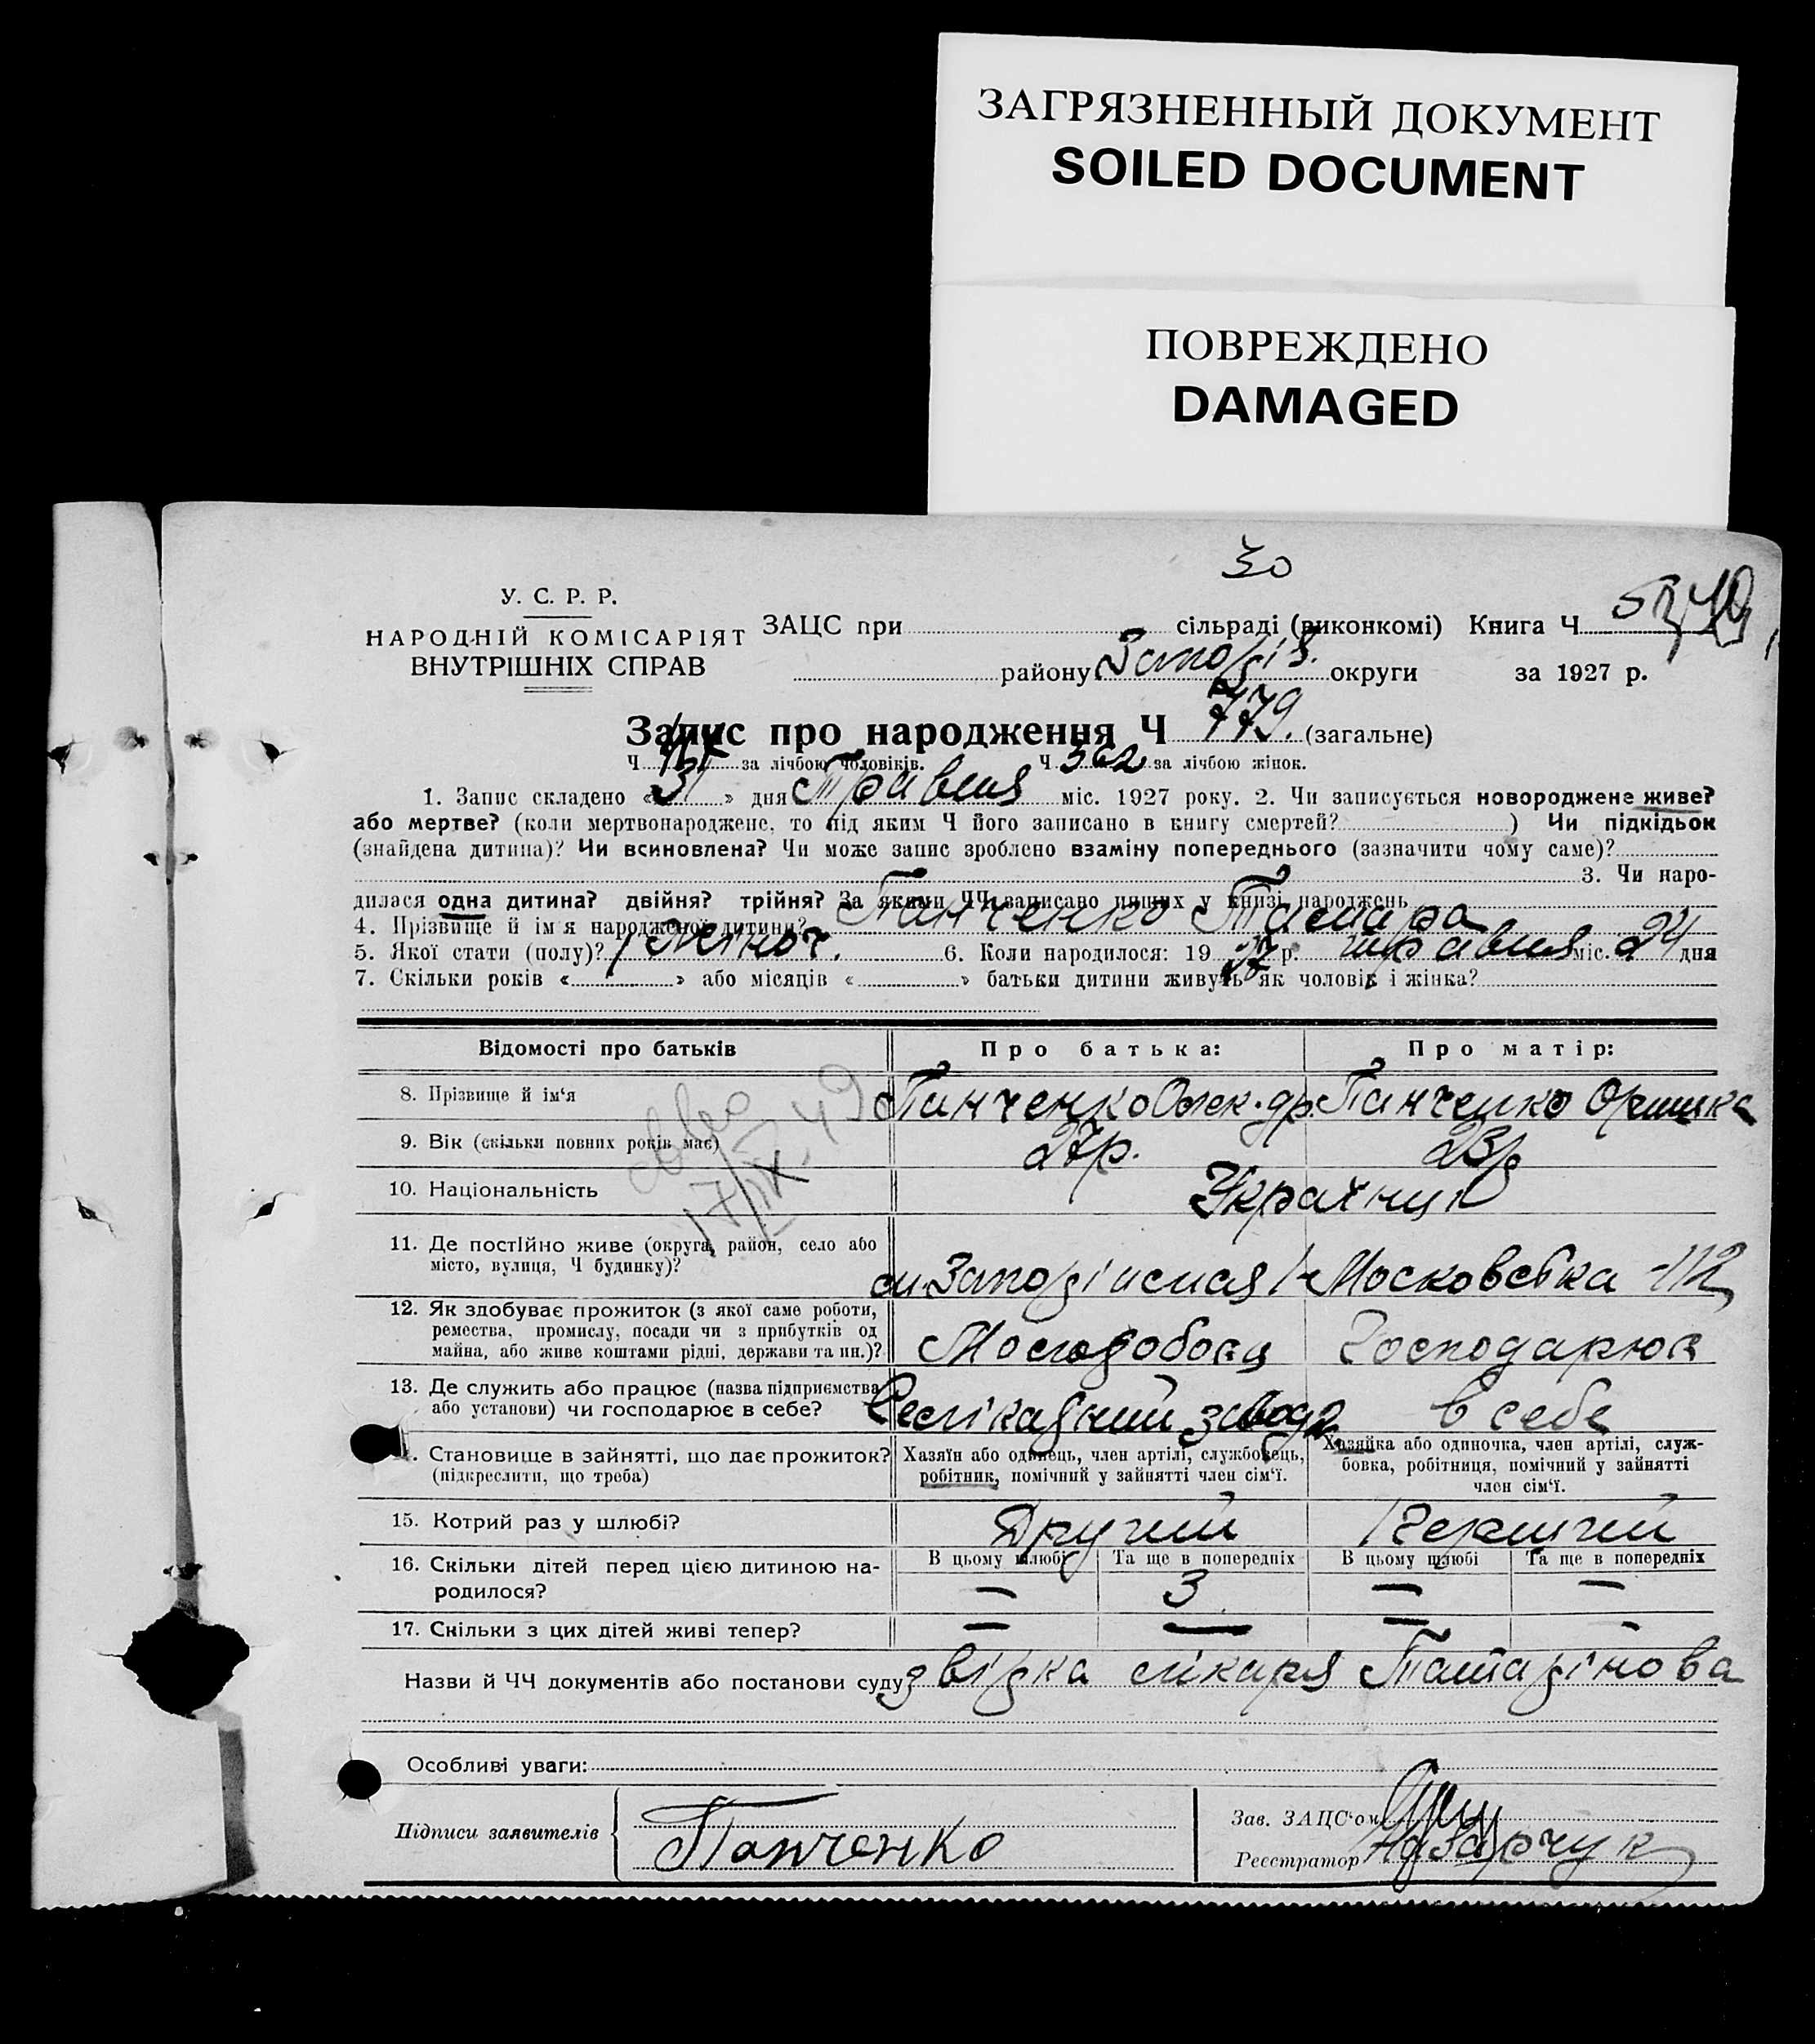 ЗАГРЯЗНЕННЫЙ ДОКУМЕНТ
SOILED DOCUMENT
ПОВРЕЖДЕНО
DAMAGED
30
У. С. Р. Р.
НАРОДНІЙ КОМІСАРІЯТ
ВНУТРІШНІХ СПРАВ
ЗАЦС при сільраді (виконкомі) Книга Ч
району Запоріз. округи за 1927 р.
Запис про народження Ч 779. (загальне)
Ч за лічбою чоловіків. Ч 362 за лічбою жінок.
1. Запис складено «31» дня Травня міс. 1927 року. 2. Чи записується новороджене живе?
або мертве? (коли мертвонароджене, то під яким Ч його записано в книгу смертей? ) Чи підкідьок
(знайдена дитина)? Чи всиновлена? Чи може запис зроблено взаміну попереднього (зазначити чому саме)?
3. Чи наро-
дилася одна дитина? двійня? трійня? За якими ЧЧ записано инших у книзі народжень
4. Прізвище й ім'я народженої дитини? Панченко Тамара
5. Якої стати (полу)? жіноч. 6. Коли народилося: 1927 р. травня міс. 24 дня
7. Скільки років « » або місяців « » батьки дитини живуть як чоловік і жінка?
Відомості про батьків Про батька: Про матір:
8. Прізвище й ім‘я Панченко Олек-др Панченко Оришка
9. Вік (скільки повних років має) 27р. 23р
10. Національність Українці
11. Де постійно живе (округа, район, село або
місто, вулиця, Ч будинку)? м. Запоріжжя Московська -112
12. Як здобуває прожиток (з якої саме роботи,
ремества, промислу, посади чи з прибутків од
майна, або живе коштами рідні, держави та ин.)? Господарює
13. Де служить або працює (назва підприємства
або установи) чи господарює в себе? завод в себе
. Становище в зайнятті, що дає прожиток?
(підкреслити, що треба)
Хазяїн або одинець, член артілі, службовець,
робітник, помічний у зайнятті член сім‘ї.
Хазяйка або одиночка, член артілі, служ-
бовка, робітниця, помічний у зайнятті
член сім‘ї.
15. Котрий раз у шлюбі? Другий Перший
16. Скільки дітей перед цією дитиною на-
родилося?
В цьому шлюбі Та ще в попередніх В цьому шлюбі Та ще в попередніх
— 3 — —
17. Скільки з цих дітей живі тепер? — — — —
Назви й ЧЧ документів або постанови суду звідка лікаря Татарінова
Особливі уваги:
Підписи заявителів Панченко
Зав. ЗАЦС‘ом
Реєстратор Назарчук